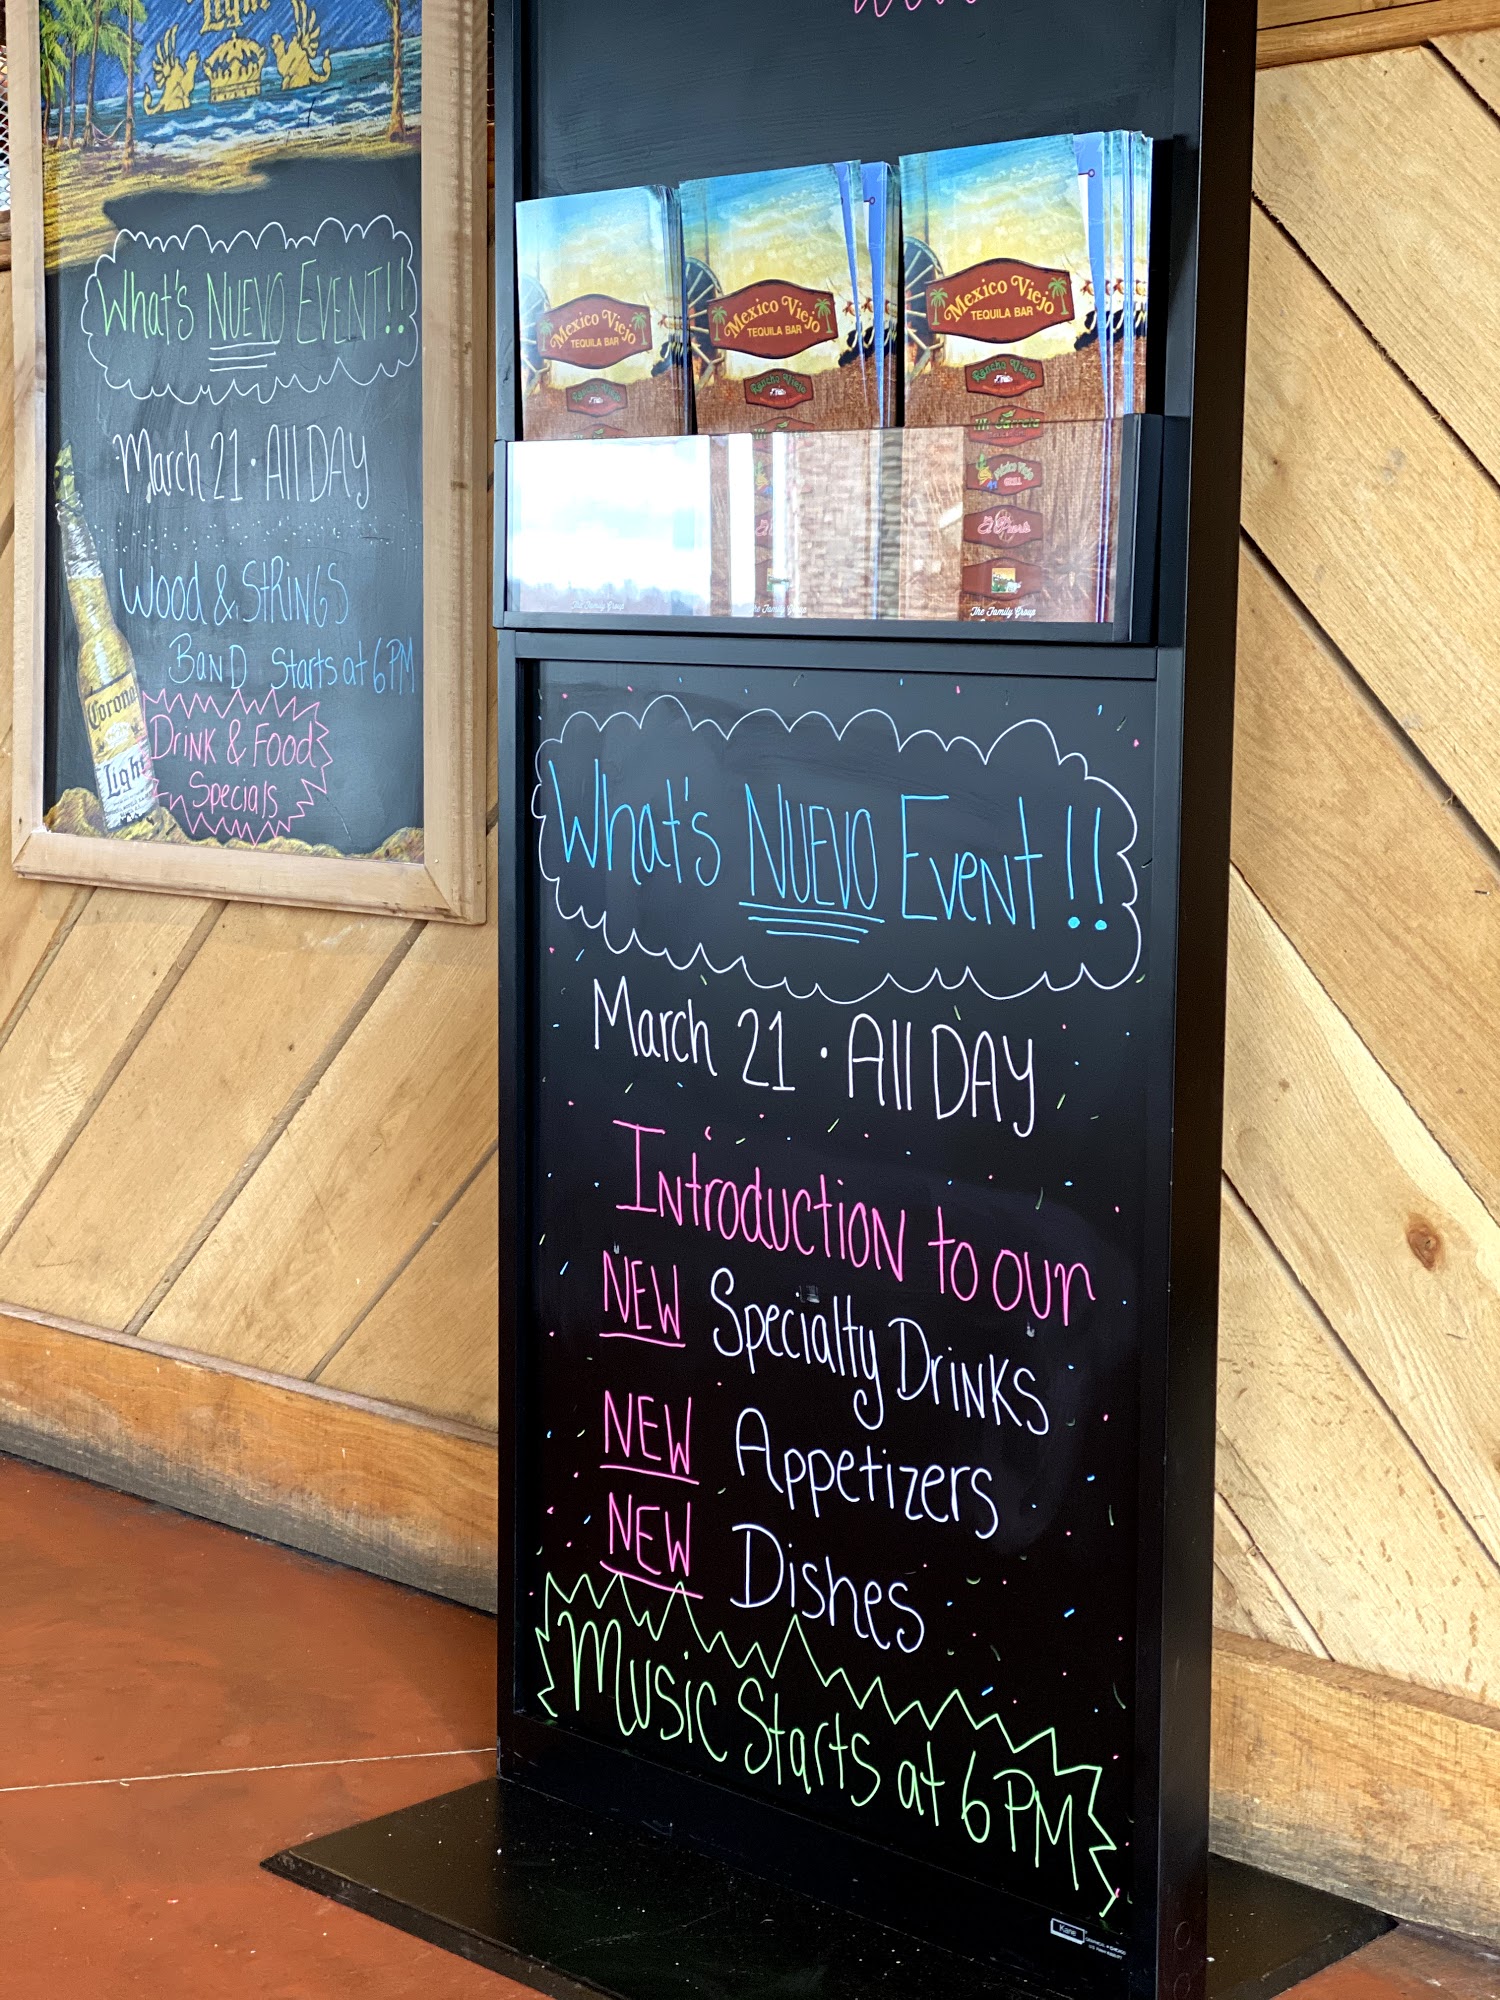 Light
What's NUEVO EVENT!!
March 21 · All DAY
Wood & StRiNGS
BaND Starts at 6PM
DRiNK & FOOD
Specials
Corona
Light
Mexico Viejo
TEQUILA BAR
Rancho Viejo
The Family Group
Mexico Viejo
TEQUILA BAR
Rancho Viejo
The Family Group
Mexico Viejo
TEQUILA BAR
Rancho Viejo
GRILL
The Family Group
What's NUEVO EveNt!!
March 21 · All DAY
INtroductioN to our
NEW Specialty DriNKS
NEW Appetizers
NEW Dishes
Music Starts at 6PM
Kane